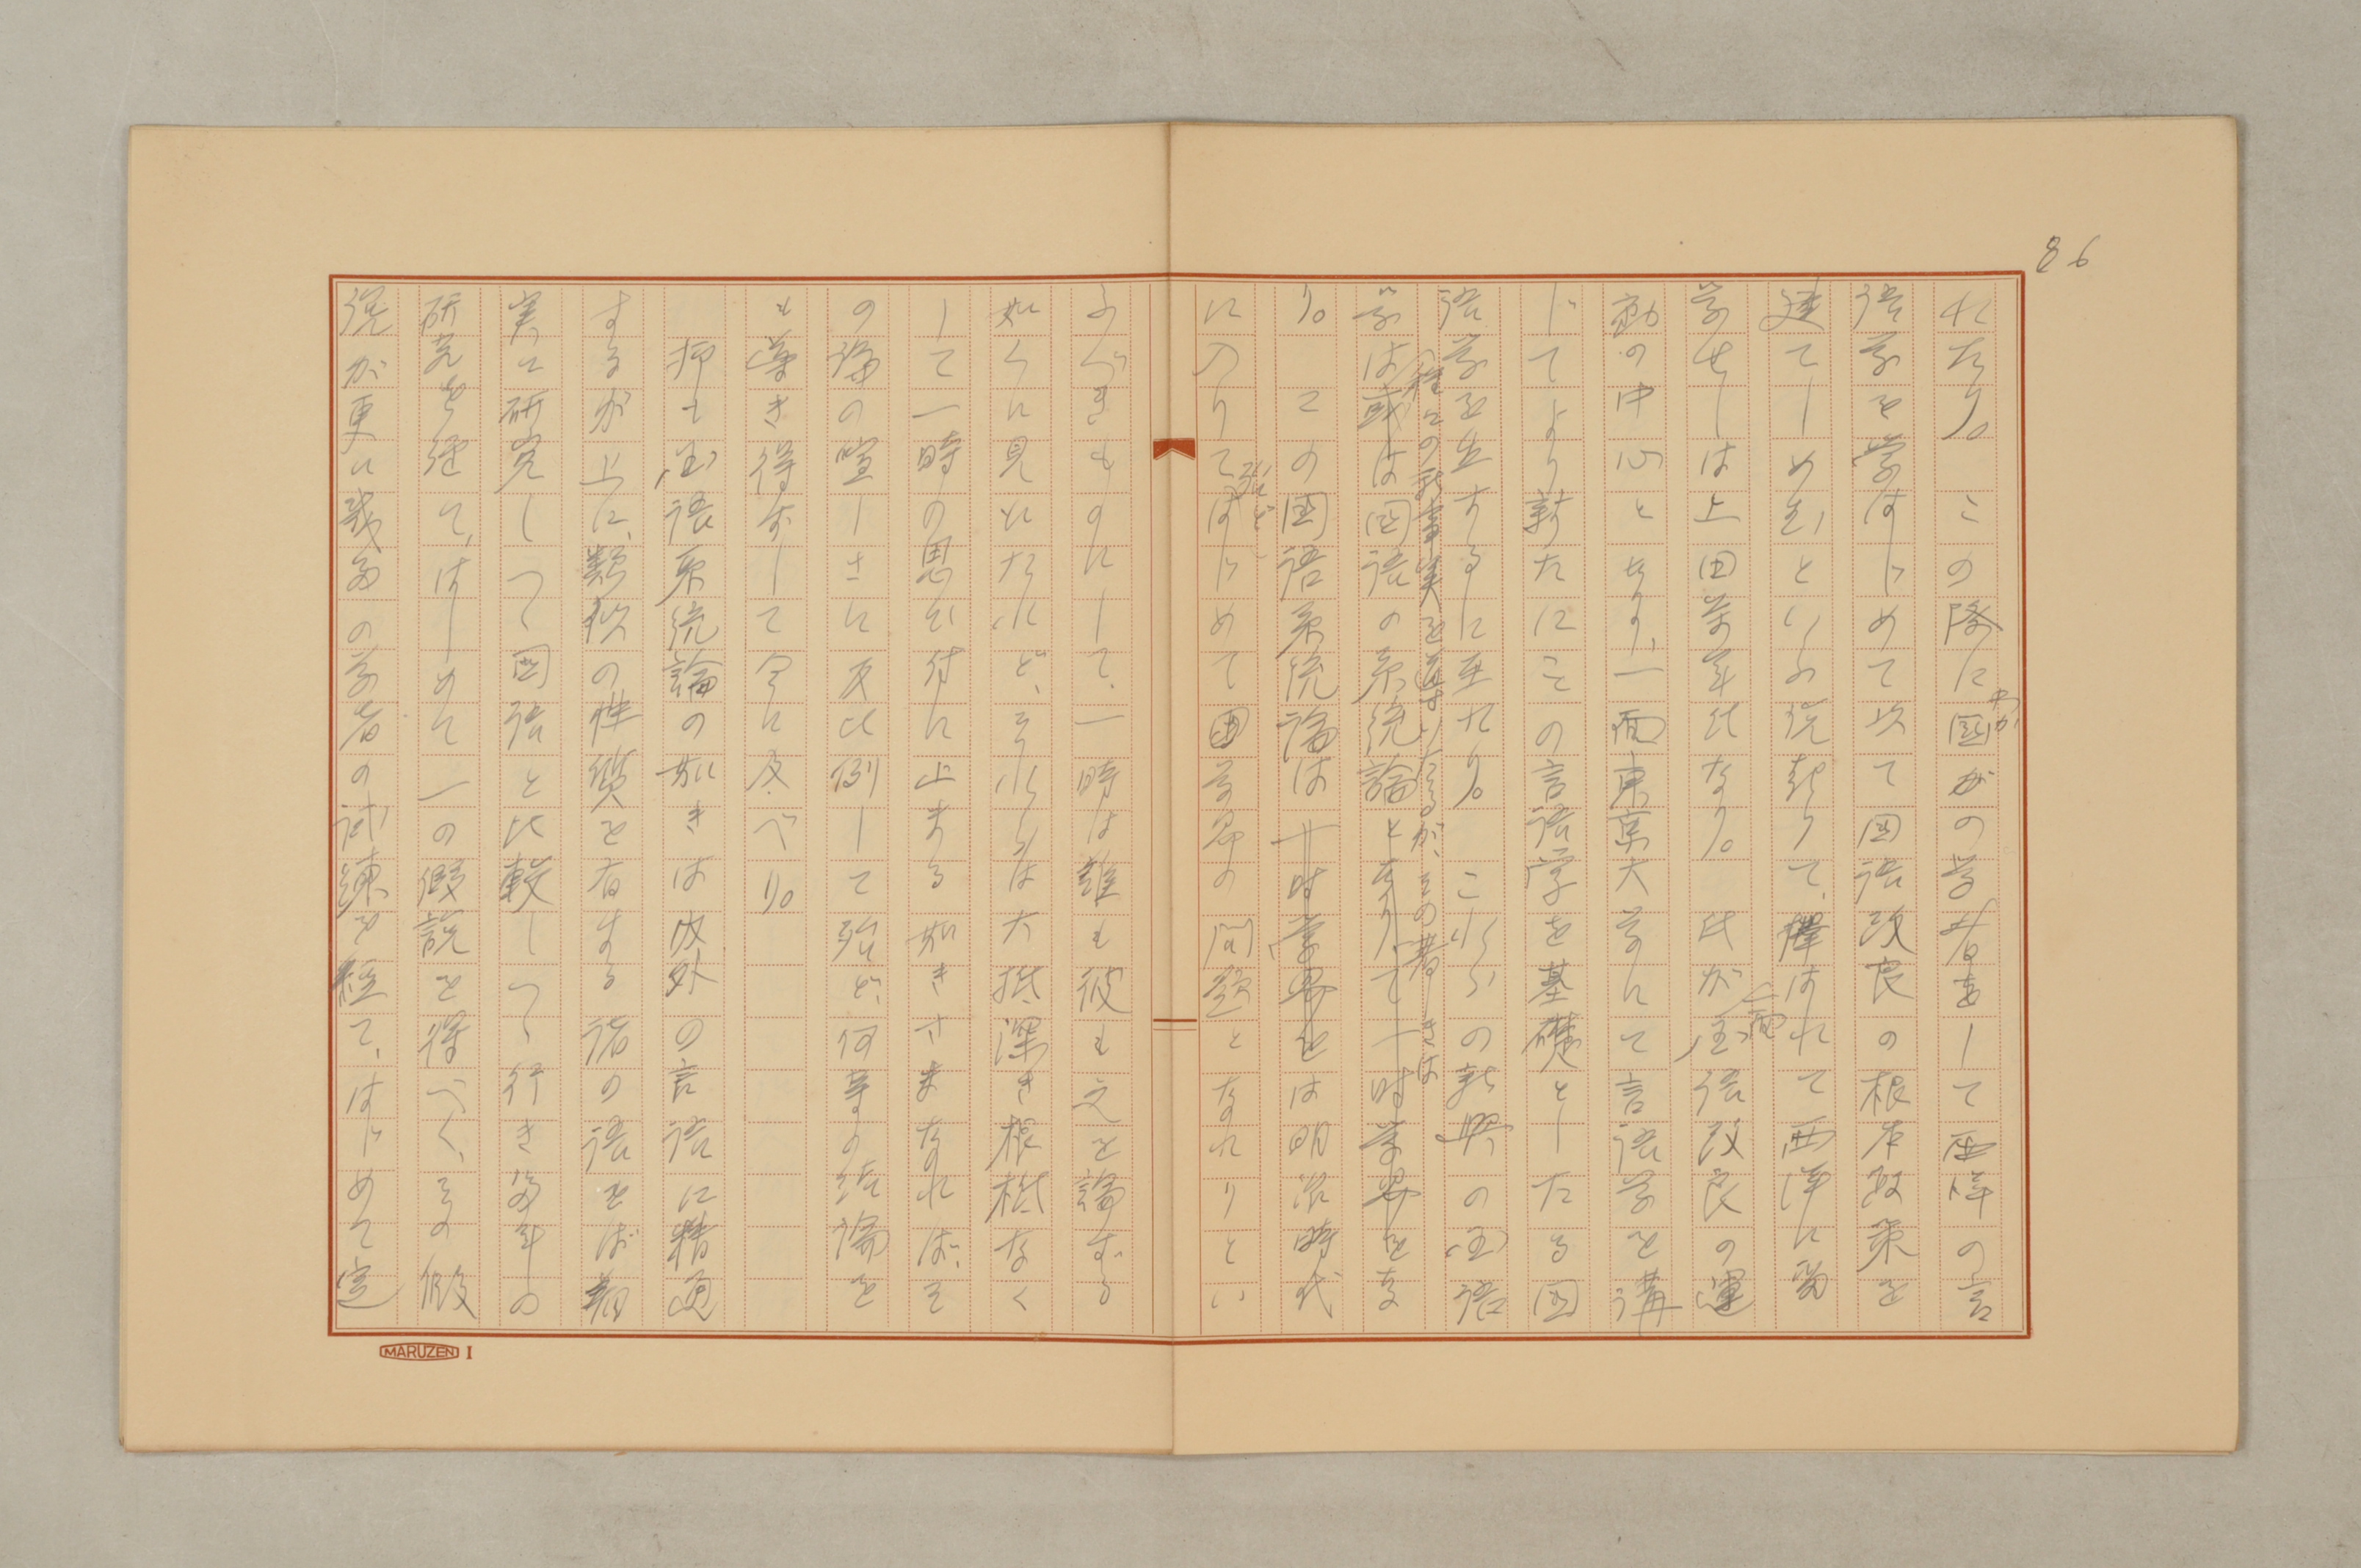 86
れたり。この際に国がの学者をして西洋の言
わが
語学を学はしめて次て国語改良の根本政策を
建てしめむといふ説起りて、擇はれて西洋に留
学せしは上田萬年氏なり。氏が国語改良の運
一面
動の中心となり、一面東京大学にて言語学を講
じてより新たにこの言語学を基礎としたる国
語学を生するに至れり。これらの新興の国語
種々の新事実を導いたるが、その著しきは
学は或は国語の系統論となりて一時学界を
り。この国語系統論は一時学界をは明治時代
に入りてはしめて国学界の問題となれりとい
殆ど
ふべきものにして、一時は誰も彼も之を論ずる
如くに見えたれど、それらは大抵深き根柢なく
して一時の思ひ付に止まる如きさまなれば、そ
の論の喧しさに反比例して殆ど、何等の結論を
も導き得ずして今に及べり。
抑も国語系統論の如きは内外の言語に精通
するが上に、類似の性質を有する諸の語をば着
実に研究しつゝ国語と比較しつゝ行き多年の
研究を経て、はしめて一の假説を得べく、その假
説が更に幾多の学者の試練を経て、はじめて定
MARUZEN I